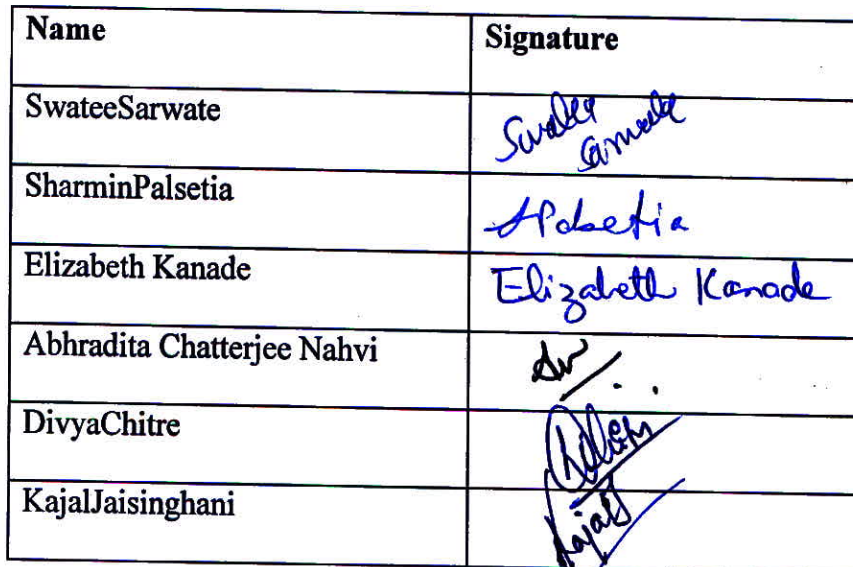 Name Signature
SwateeSarwate Swatee
Sarwate
SharminPalsetia SPalsetia
Elizabeth Kanade Elizabeth Kanade
Abhradita Chatterjee Nahvi
DivyaChitre
KajalJaisinghani Kajal